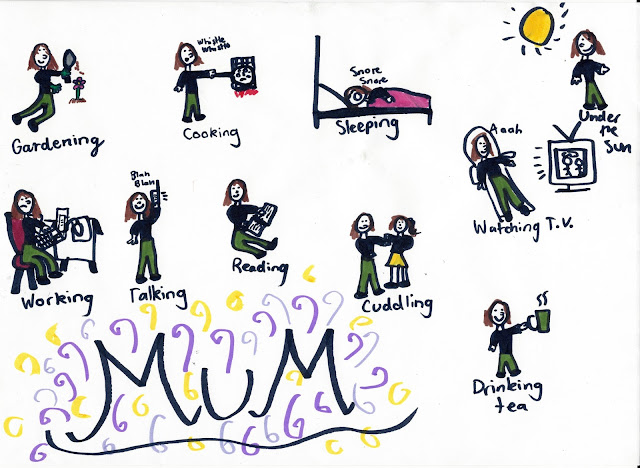 Whistle
Whistle
Snore
Snore
Gardening
Cooking
Sleeping
Under
the
Sun
Aaah
Watching T.V.
Blah
Blah
Working
Talking
Reading
Cuddling
MUM
Drinking
tea